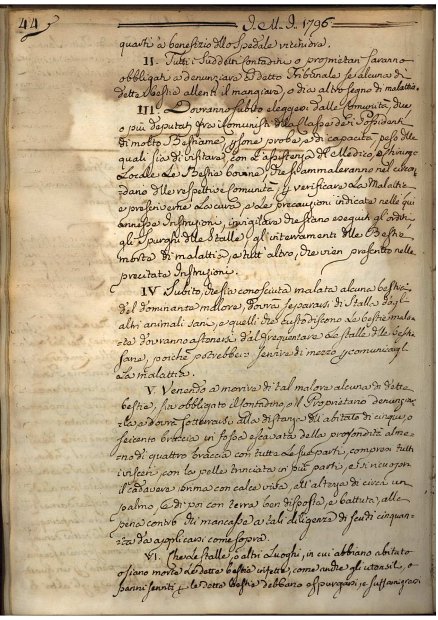 44 I. M. I. 1796
quarti à benefizio dello Spedale viciniora.
II. Tutti i Sudditi contadini o proprietari saranno
obbligati a denunziare al detto Tribunale se alcuna di
dette Bestie allenti il mangiare, o dia altro segno di malattia.
III. Dovranno subito eleggersi dalle Comunità, due
o più deputati fra i Comunisti della Classe dei Possidenti
di molto Bestiame, persone probe, e di capacità, peso delle
quali sia di visitare, con l'assistenza del Medico, e Chirurgo
Locale le Bestie bovine, che s'ammaleranno nel circon
dario delle respettive Comunità, verificare la Malattia
e prescriverne la cura e le precauzioni indicate nelle qui
annesse Instruzioni, invigilare che siano eseguiti gl'ordini
gli spurghi delle Stalle, gl'interramenti delle Bestie
morte di malattia, e tutt'altro, che vien prescritto nelle
precitate Instruzioni.
IV Subito, che sia conosciuta malata alcuna bestia
del dominante malore, dovrà separarsi di Stalla dagl'
altri animali sani, e quelli che custodiscono le bestie mala
te dovranno astenersi dal frequentare le stalle delle bestie
sane, poiche potrebbero servire di mezzo a comunicargli
la malattia.
V. Venendo a morire di tal malore alcuna di dette
bestie, sia obbligato il Contadino, o il Proprietario denunziar
la, e dovrà sotterrarsi alla distanza dell'abitato di cinque, o
seicento braccia in fossa escavata della profondità alme
no di quattro braccia con tutte le sue parti, compresi tutti
i visceri, con la pelle trinciata in più parti, e si ricuopra
il cadavere prima con calce viva, all'altezza di circa un
palmo, e di poi con terra ben disposta, e battuta, alle
pena contro chi mancasse a tali diligenze di scudi cinquan
ta da applicarsi come sopra.
VI. Che le stalle, o altri Luoghi, in cui abbiano abitato
o siano morte le dette bestie infette, come anche gli utensili, o
panni serviti per le dette bestie debbano espurgarsi, e suffumigarsi